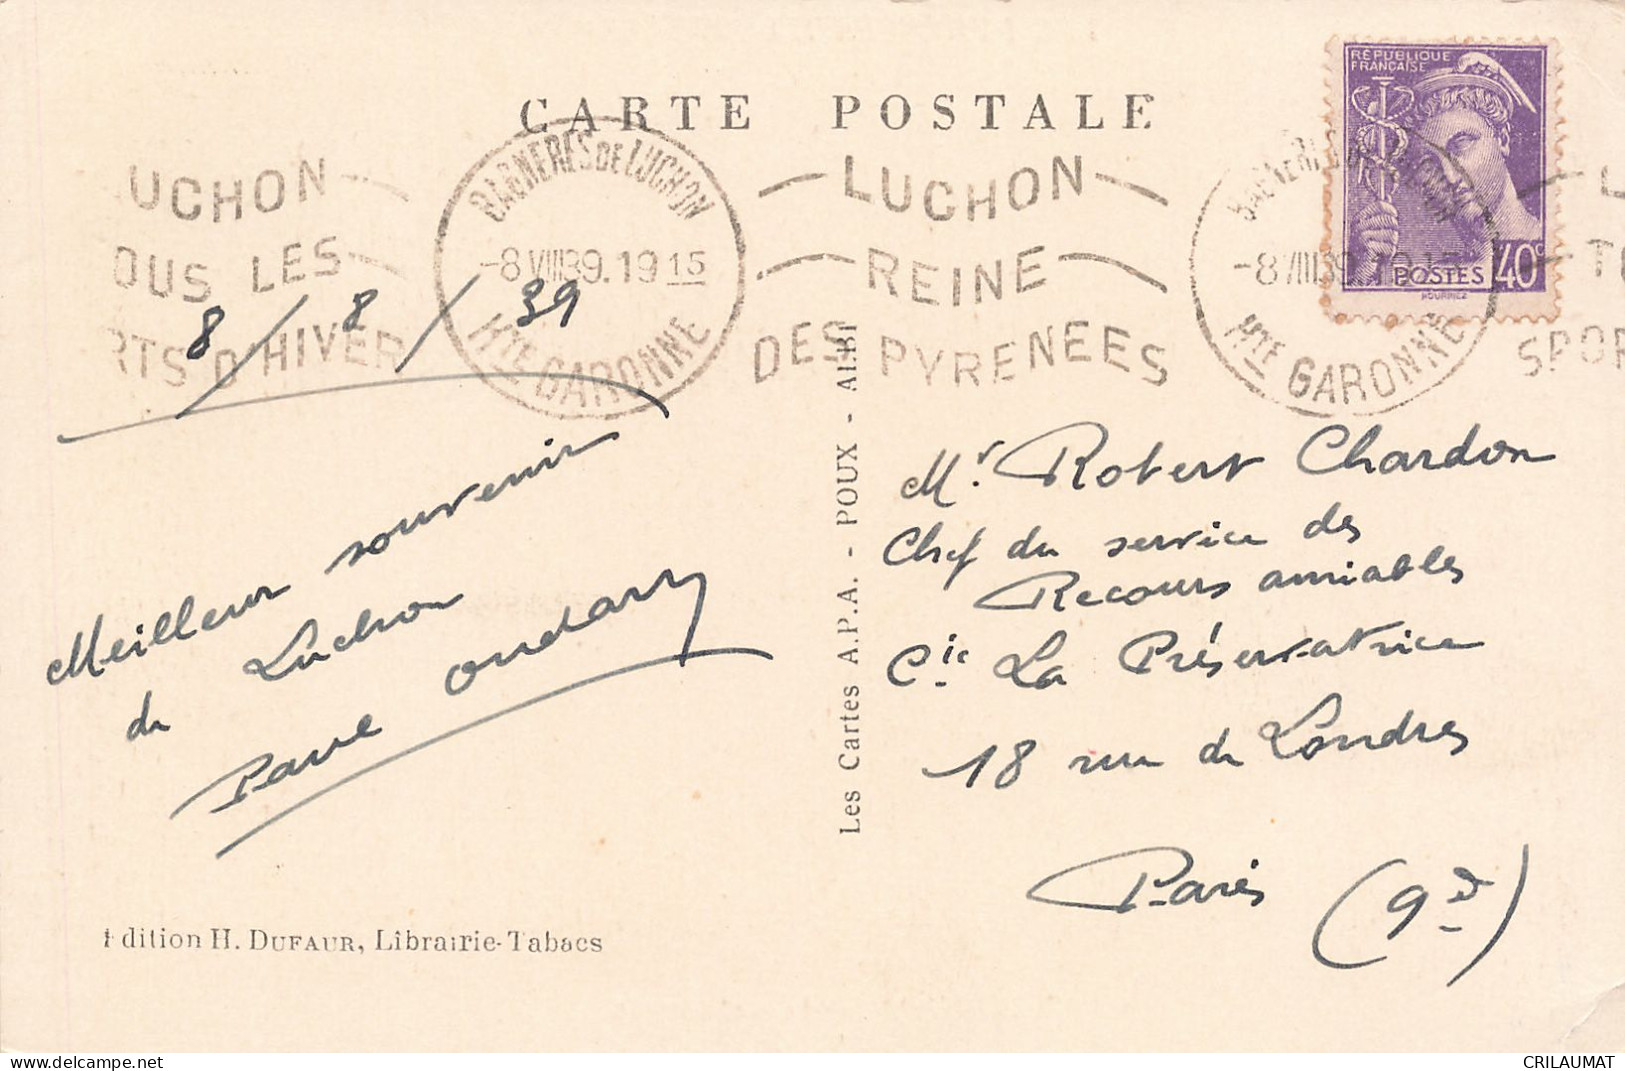 CARTE POSTALE
RÉPUBLIQUE
FRANÇAISE
POSTES 40c
UCHON
OUS LES
RTS D'HIVER
BAGNERES DE LUCHON
-8 VIII 39. 19 15
Hte GARONNE
LUCHON
REINE
DES PYRENEES
BAGNERES DE LUCHON
-8 VIII 39. 19 15
Hte GARONNE
L
T
SPOR
8 / 8 / 39
Meilleur souvenir
de Luchon
Mr. Robert Chardon
Chef du service des
Recours amiables
Cie La Préservatrice
18 rue de Londres
Paris (9e)
Les Cartes A.P.A. - POUX - ALBI
Edition H. DUFAUR, Librairie-Tabacs
www.delcampe.net
CRILAUMAT